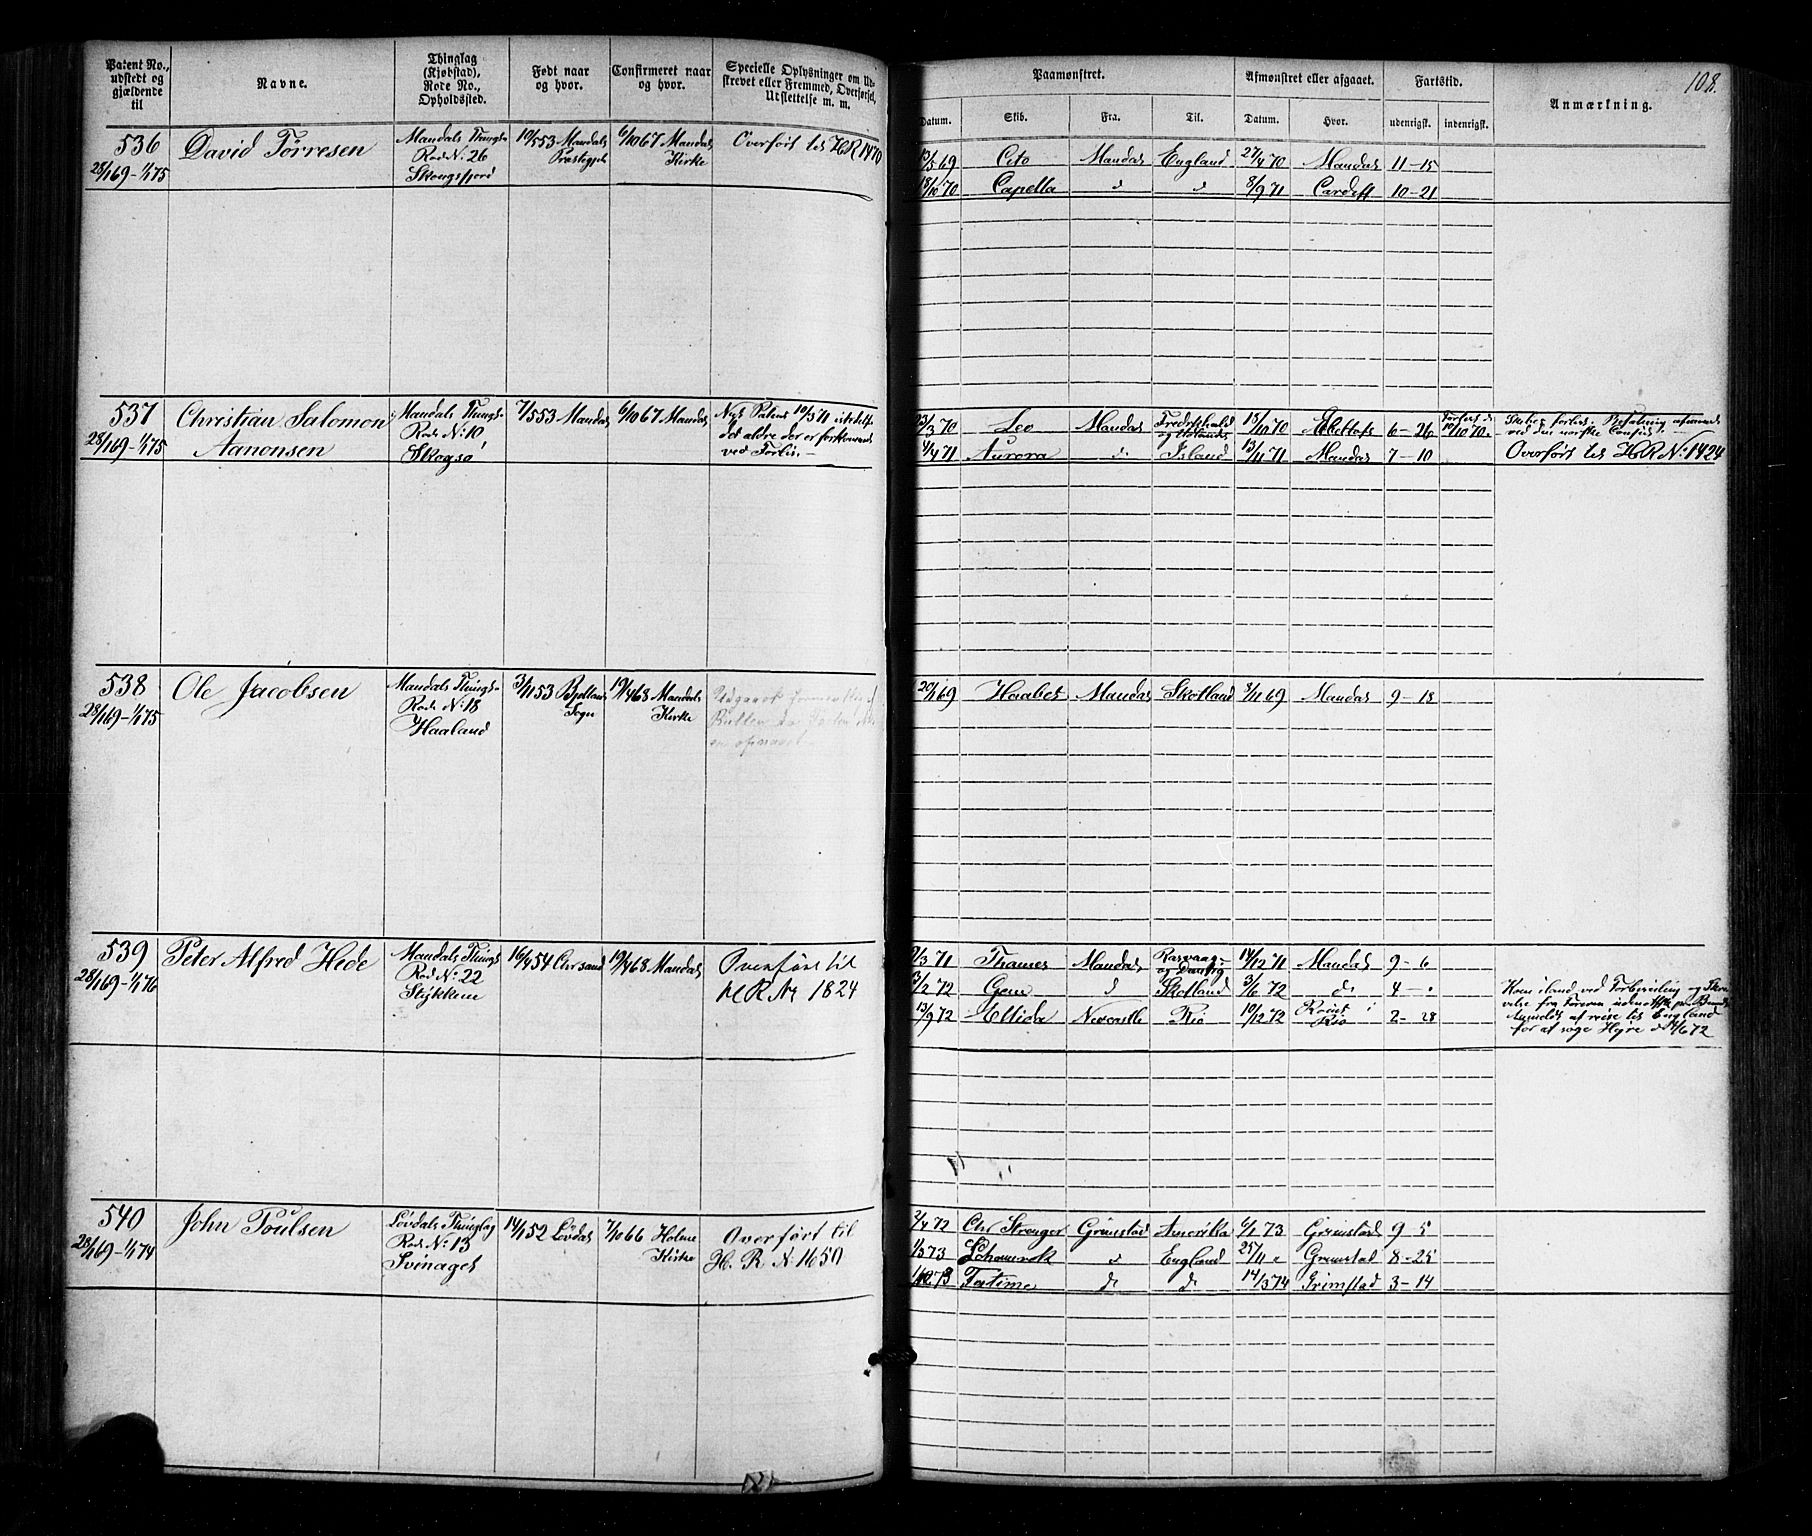 108.
Patent No., udstedt og gjældende til
Navne.
Thinglag (Kjøbstad), Rode No., Opholdssted.
Født naar og hvor.
Confirmeret naar og hvor.
Specielle Oplysninger om Udskrevet eller Fremmed, Overførsel, Udslettelse m. m.
Paamønstret.
Afmønstret eller afgaaet.
Fartstid.
Anmærkning.
Datum.
Skib.
Fra.
Til.
Datum.
Hvor.
udenrigsk.
indenrigsk.
536
28/1 69 - 1/1 75
David Tørresen
Mandals Thingl.
Rod N: 26
Skougsfjord
10/5 53 Mandals
Præstegjeld
6/10 67 Mandals
Kirke
Overført til HR 1470
13/5 69 Cito Mandal England 27/4 70 Mandal 11 - 15
18/10 70 Capella d d 8/9 71 Cardiff 10 - 21
537
28/1 69 - 1/1 75
Christian Salomon
Aanonsen
Mandals Thingl.
Rode N: 10
Skogsø
7/5 53 Mandal
6/10 67 Mandal
Nyt Patent 10/3 71 istedetf.
det ældre der er forkommet
ved Forlis. -
23/3 70 Leo Mandal Fredrikshald 18/10 70 6 - 26
4/4 71 Aurora d. Island 13/11 71 Mandal 7 - 10
Overført til HR N: 1424
538
28/1 69 - 1/1 75
Ole Jacobsen
Mandals Thingl.
Rode N: 18
Haaland
3/11 53 Bjelland
Sogn
19/4 68 Mandals
Kirke
20/1 69 Haabet Mandal Skotland 8/11 69 Mandal 9 - 18
539
28/1 69 - 1/1 76
Peter Alfred Hede
Mandals Thingl
Rod N: 22
16/4 54 Chrsand
19/4 68 Mandal
Overført til
HR No 1824
9/3 71 Thames Mandal Danzig 14/12 71 Mandal 9 - 6
3/2 72 Gem d Skotland 3/6 72 d. 4 -
13/9 72 Ellida Newcastle Rio 10/12 72 Rømt i Rio 2 - 28
af reise til England
for at søge Hyre d. 4/6 72
540
28/1 69 - 1/1 74
John Poulsen
Løvdals Thinglag
Rod N: 13
Svinaget
14/1 52 Løvdal
7/10 66 Holme
Kirke
Overført til
H. R N: 1650
2/4 72 Chr Stranger Grimstad Amerikka 6/1 73 Grimstad 9 - 5
1/3 73 d England 25/11 " Grimstad 8 - 25
1/12 73 Fatime d. d. 14/3 74 Grimstad 3 - 14